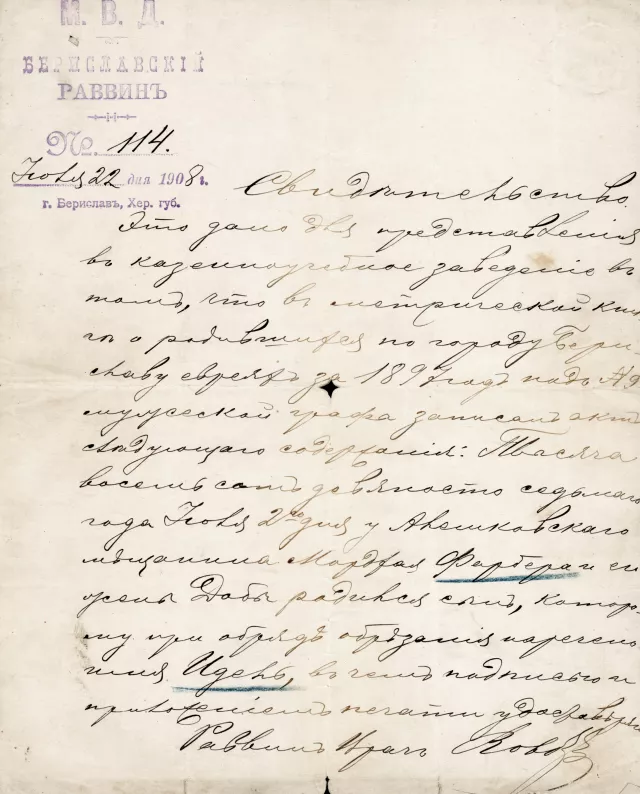 М. В. Д.
БЕРИСЛАВСКІЙ
РАВВИНЪ
№. 114.
22 дня 1908 г.
г. Бериславъ, Хер. губ.
Свидѣтельство.
Это дано для представленія
въ казенноучебное заведеніе въ
томъ, что въ метрической кни
гѣ о родившихся по городу Бери
славу евреяхъ за 1897 годъ подъ №
мужеской графа записанъ актъ
слѣдующаго содержанія: Тысяча
восемьсотъ девяносто седьмаго
года 2го дня у
мѣщанина Мордхая Фарбера и его
жены Добы родился сынъ, которо
му при обрядѣ обрѣзанія наречено
имя Идель, въ чемъ подписью и
приложеніемъ печати удостовѣряю
Раввинъ Врачъ